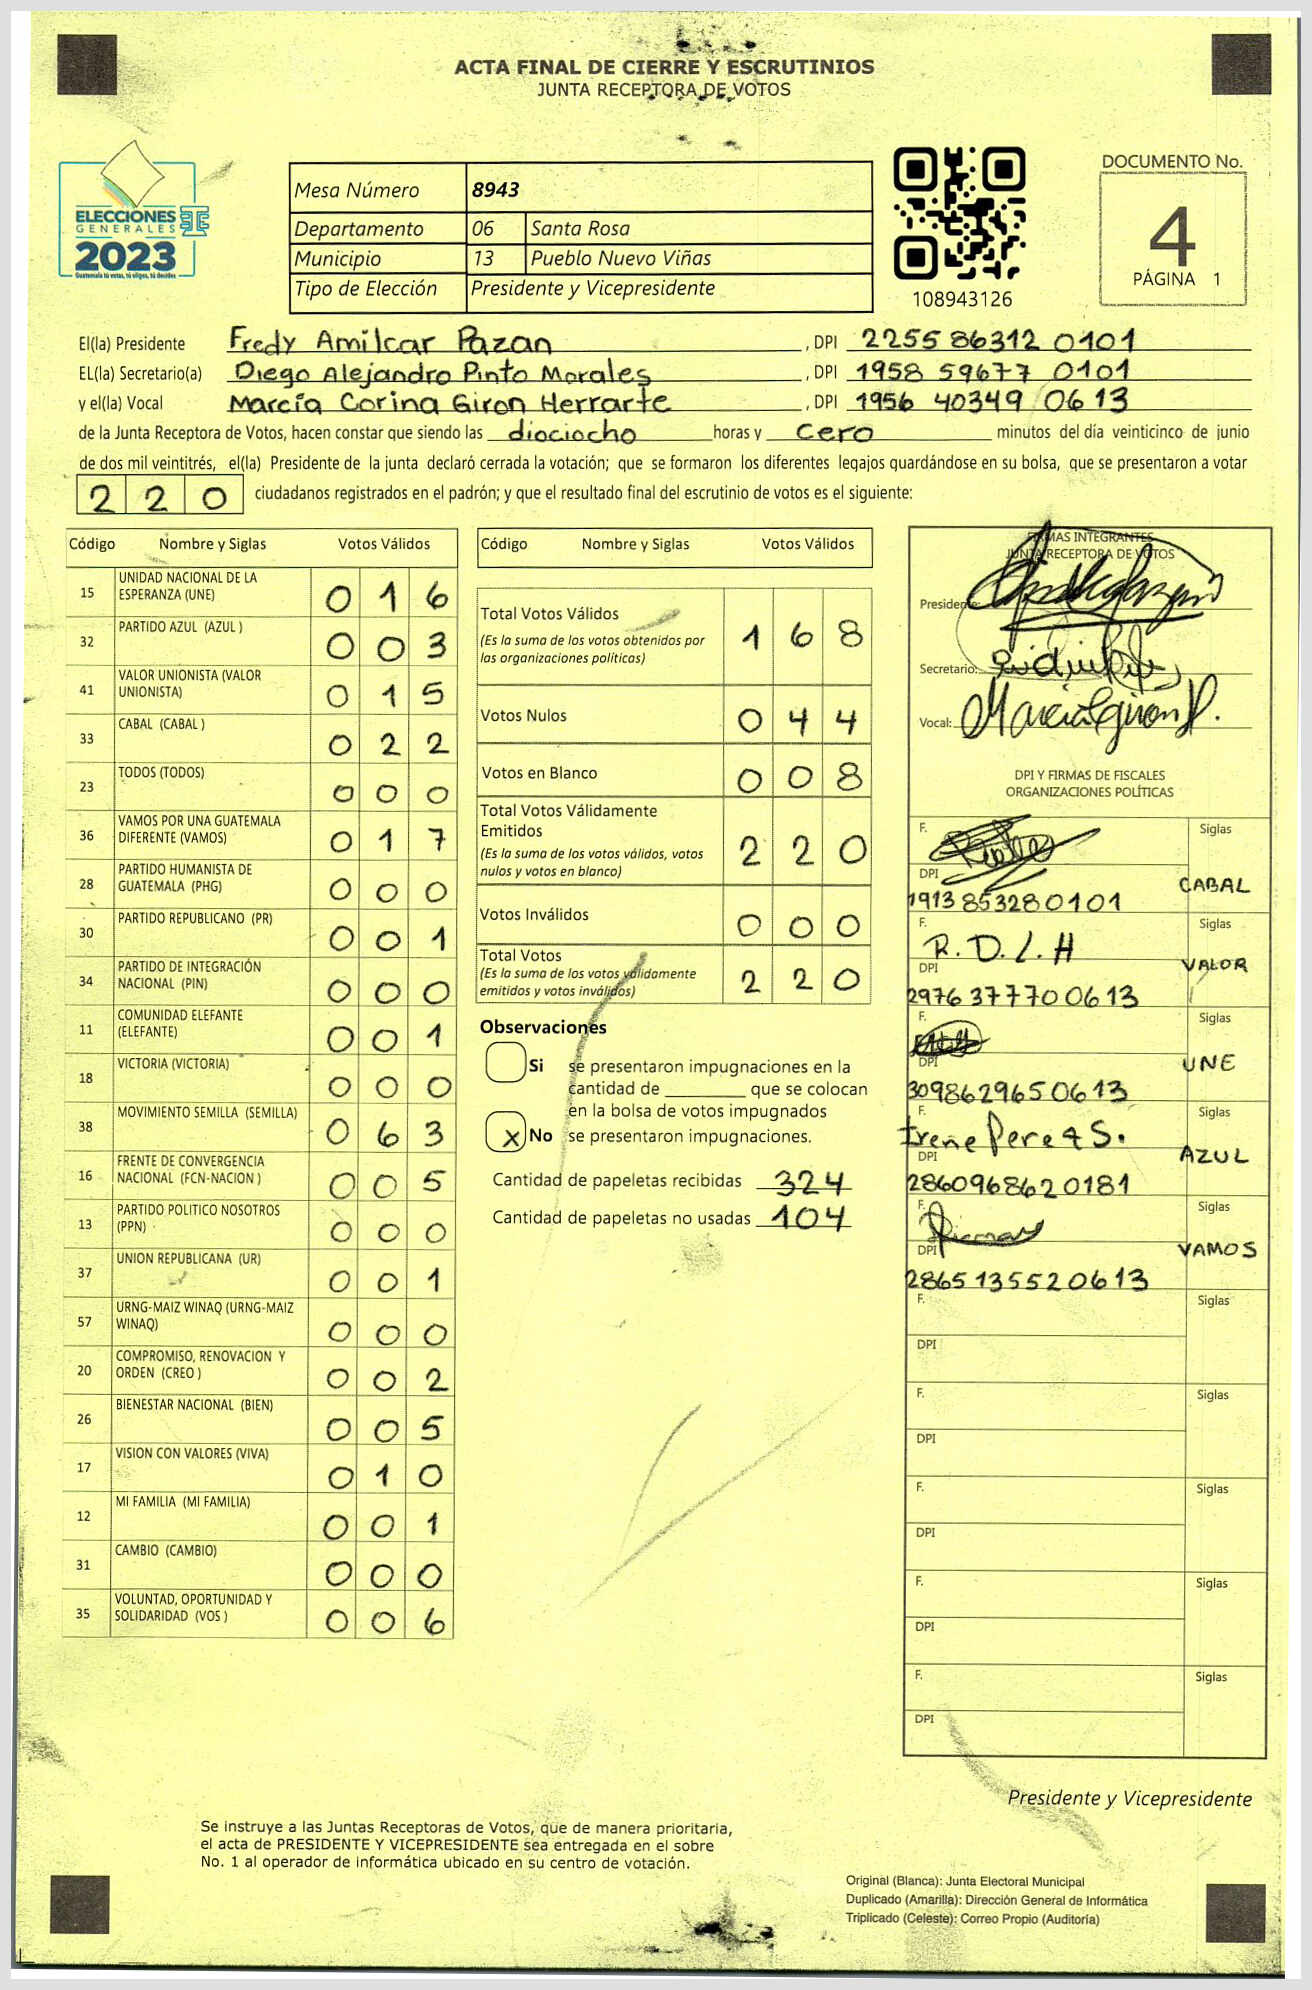 ACTA FINAL DE CIERRE Y ESCRUTINIOS
JUNTA RECEPTORA DE VOTOS
ELECCIONES
GENERALES
2023
Guatemala tú votas, tú eliges, tú decides
Mesa Número 8943
Departamento 06 Santa Rosa
Municipio 13 Pueblo Nuevo Viñas
Tipo de Elección Presidente y Vicepresidente
108943126
DOCUMENTO No.
4
PÁGINA 1
El(la) Presidente Fredy Amilcar Pazan , DPI 2255 86312 0101
EL(la) Secretario(a) Diego Alejandro Pinto Morales , DPI 1958 59677 0101
y el(la) Vocal Marcía Corina Giron Herrarte , DPI 1956 40349 0613
de la Junta Receptora de Votos, hacen constar que siendo las diociocho horas y cero minutos del día veinticinco de junio
de dos mil veintitrés, el(la) Presidente de la junta declaró cerrada la votación; que se formaron los diferentes legajos guardándose en su bolsa, que se presentaron a votar
220 ciudadanos registrados en el padrón; y que el resultado final del escrutinio de votos es el siguiente:
Código Nombre y Siglas Votos Válidos
15 UNIDAD NACIONAL DE LA ESPERANZA (UNE) 016
32 PARTIDO AZUL (AZUL ) 003
41 VALOR UNIONISTA (VALOR UNIONISTA) 015
33 CABAL (CABAL ) 022
23 TODOS (TODOS) 000
36 VAMOS POR UNA GUATEMALA DIFERENTE (VAMOS) 017
28 PARTIDO HUMANISTA DE GUATEMALA (PHG) 000
30 PARTIDO REPUBLICANO (PR) 001
34 PARTIDO DE INTEGRACIÓN NACIONAL (PIN) 000
11 COMUNIDAD ELEFANTE (ELEFANTE) 001
18 VICTORIA (VICTORIA) 000
38 MOVIMIENTO SEMILLA (SEMILLA) 063
16 FRENTE DE CONVERGENCIA NACIONAL (FCN-NACION ) 005
13 PARTIDO POLITICO NOSOTROS (PPN) 000
37 UNION REPUBLICANA (UR) 001
57 URNG-MAIZ WINAQ (URNG-MAIZ WINAQ) 000
20 COMPROMISO, RENOVACION Y ORDEN (CREO ) 002
26 BIENESTAR NACIONAL (BIEN) 005
17 VISION CON VALORES (VIVA) 010
12 MI FAMILIA (MI FAMILIA) 001
31 CAMBIO (CAMBIO) 000
35 VOLUNTAD, OPORTUNIDAD Y SOLIDARIDAD (VOS ) 006
Código Nombre y Siglas Votos Válidos
Total Votos Válidos 168
(Es la suma de los votos obtenidos por
las organizaciones políticas)
Votos Nulos 044
Votos en Blanco 008
Total Votos Válidamente
Emitidos 220
(Es la suma de los votos válidos, votos
nulos y votos en blanco)
Votos Inválidos 000
Total Votos 220
(Es la suma de los votos válidamente
emitidos y votos inválidos)
Observaciones
Si se presentaron impugnaciones en la
cantidad de ________ que se colocan
en la bolsa de votos impugnados
x No se presentaron impugnaciones.
Cantidad de papeletas recibidas 324
Cantidad de papeletas no usadas 104
FIRMAS INTEGRANTES
JUNTA RECEPTORA DE VOTOS
Presidente:
Secretario:
Vocal: Marcia Giron H.
DPI Y FIRMAS DE FISCALES
ORGANIZACIONES POLÍTICAS
F. Siglas
DPI CABAL
1913853280101
F. Siglas
R.D.L.H
DPI VALOR
2976377700613
F. Siglas
DPI UNE
3098629650613
F. Siglas
Irene Perez S.
DPI AZUL
2860968620181
F. Siglas
DPI VAMOS
2865135520613
F. Siglas
DPI
F. Siglas
DPI
F. Siglas
DPI
F. Siglas
DPI
F. Siglas
DPI
Presidente y Vicepresidente
Se instruye a las Juntas Receptoras de Votos, que de manera prioritaria,
el acta de PRESIDENTE Y VICEPRESIDENTE sea entregada en el sobre
No. 1 al operador de informática ubicado en su centro de votación.
Original (Blanca): Junta Electoral Municipal
Duplicado (Amarilla): Dirección General de Informática
Triplicado (Celeste): Correo Propio (Auditoría)